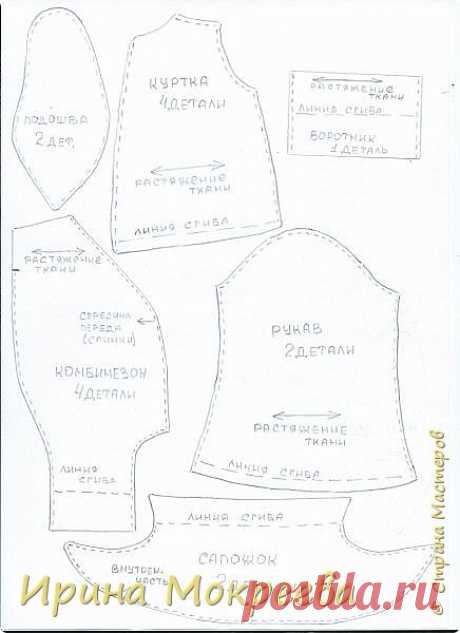 ПОДОШВА
2 ДЕТ.
КУРТКА
4 ДЕТАЛИ
РАСТЯЖЕНИЕ
ТКАНИ
ЛИНИЯ СГИБА
РАСТЯЖЕНИЕ
ТКАНИ
ЛИНИЯ СГИБА
ВОРОТНИК
1 ДЕТАЛЬ
РАСТЯЖЕНИЕ
ТКАНИ
СЕРЕДИНА
ПЕРЕДА
(СПИНКИ)
КОМБИНЕЗОН
4 ДЕТАЛИ
ЛИНИЯ
СГИБА
РУКАВ
2 ДЕТАЛИ
РАСТЯЖЕНИЕ
ТКАНИ
ЛИНИЯ СГИБА
ЛИНИЯ СГИБА
САПОЖОК
ВНУТРЕН.
ЧАСТЬ
Ирина
postila.ru
© Страна Мастеров